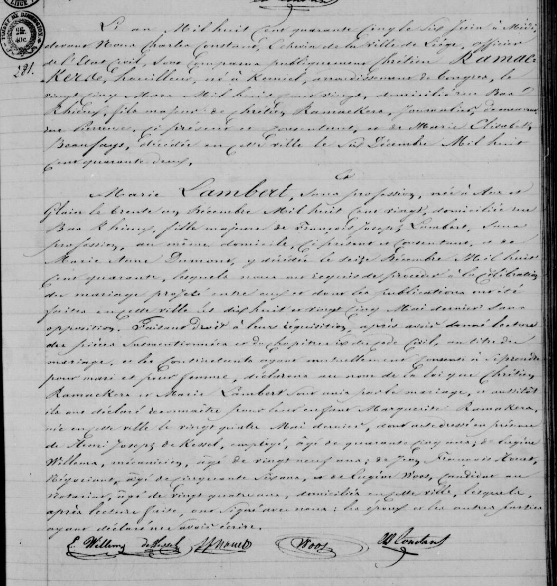 L'an Mil huit Cent quarante Cinq le Six Juin à Midi,
devant Nous Charles Constant, Echevin de la Ville de Liége, officier
de l'Etat Civil, Sont Comparus publiquement Chrétien Ramac
Kers, houilleur, né à arrondissement de Tongres, le
vingt Mars Mil huit Cent vingt, domicilié rue Bas
Rhieux, fils majeur de Chrétien Ramackers, Journalier, demeurant
rue Ci présent et Consentant, et de Marie Elisabeth
Beaufays, décédée en cette ville le Six Décembre Mil huit
Cent quarante deux,
Et
Marie Lambert, Sans profession, née à Ans et
Glain le trente un Décembre Mil huit Cent vingt, domiciliée rue
Bas Rhieux, fille majeure de François Joseph Lambert, Sans
profession, au même domicile, Ci présent et Consentant, et de
Marie Anne Dumont, y décédée le Seize Décembre Mil huit
Cent quarante, lesquels nous ont requis de procéder à la Célébration
du mariage projeté entre eux et dont les publications ont été
faites en cette ville les dix huit et vingt Cinq Mai dernier sans
opposition. Faisant Droit à leur réquisition, après avoir donné lecture
des pièces Susmentionnées et du Chapitre six du Code Civil au titre du
mariage, et les Contractants ayant mutuellement Consenti à S'prendre
pour mari et pour femme, déclarons au nom de la loi que Chrétien
Ramackers et Marie Lambert sont unis par le mariage, et aussitôt
ils ont déclaré reconnaître pour leur enfant Marguerite Ramackers,
née en cette ville le vingt quatre Mai dernier, dont acte dressé en présence
de Henri Joseph de Kessel, employé, âgé de quarante Cinq ans, de Eugène
Willems, mécanicien, âgé de vingt neuf ans, de Jean François
Négociant, âgé de Cinquante Six ans, et de Eugène Voos, Candidat au
Notariat, âgé de vingt quatre ans, domiciliés en cette ville, lesquels,
après lecture faite, ont Signé avec nous; les époux et les autres parties
ayant déclaré ne savoir écrire.
E. Willems deKessel Voos Ch Constant
281.